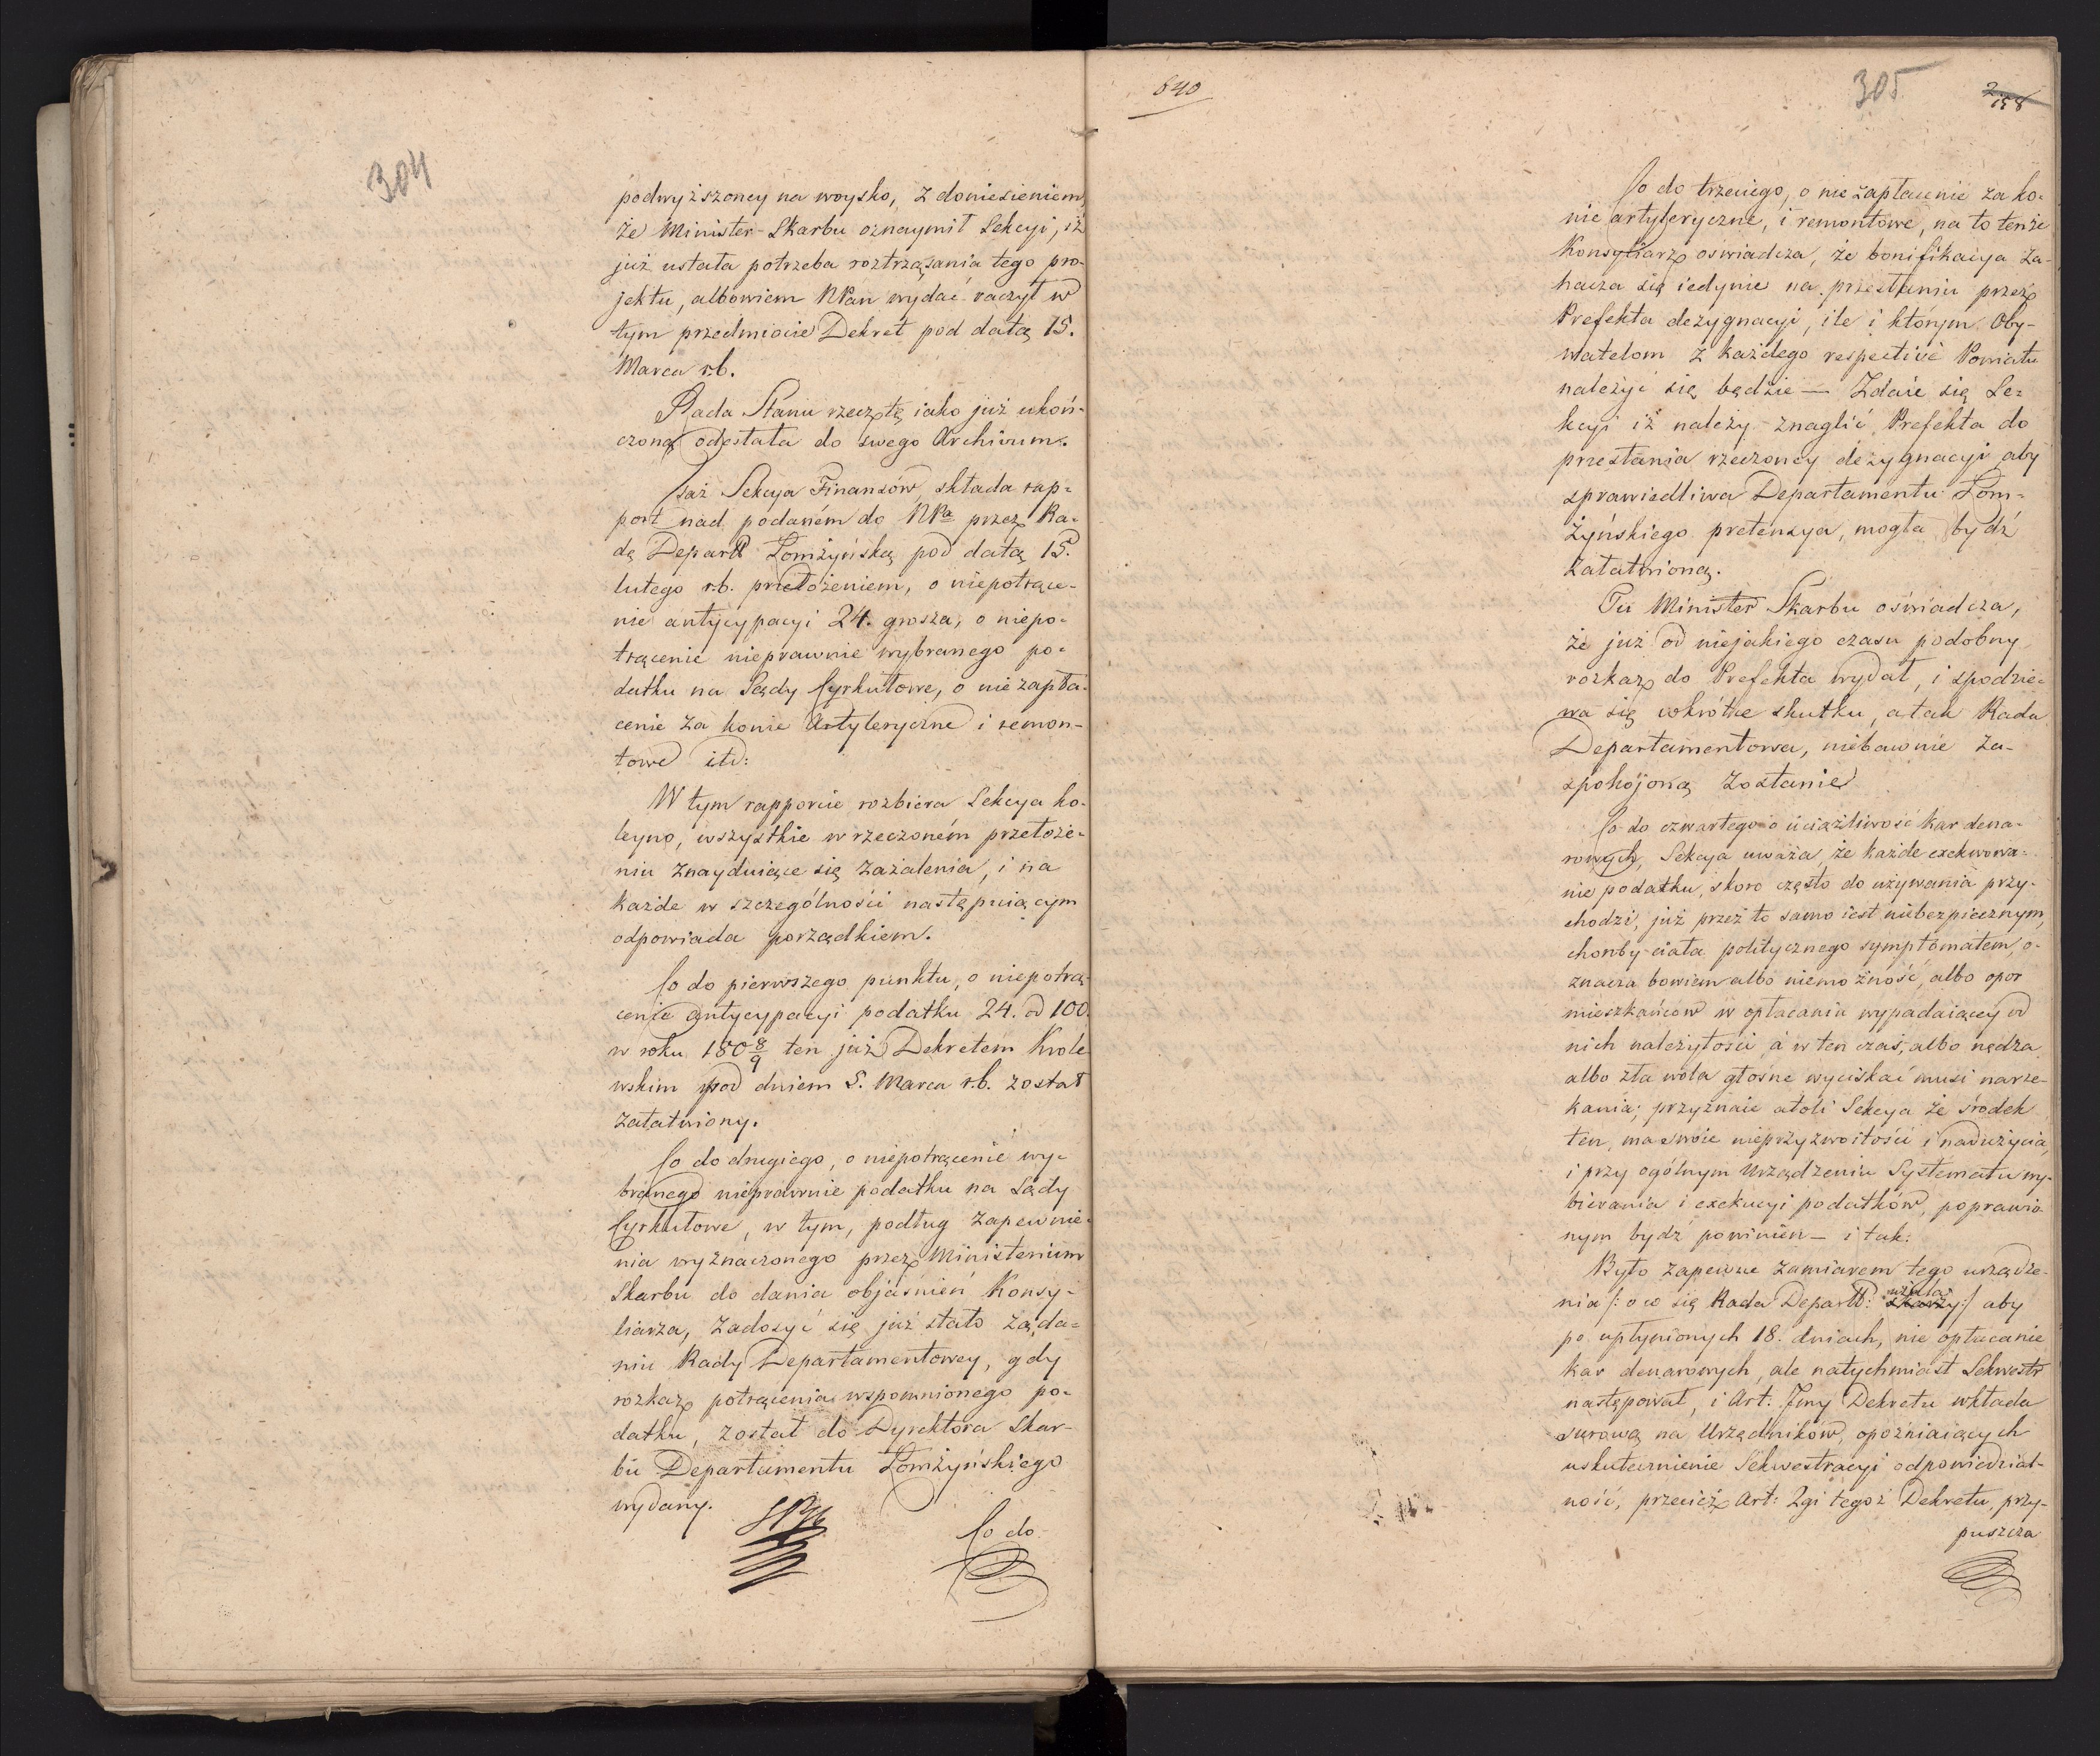 304
podwyższoney na woysko, z doniesieniem,
że Minister Skarbu oznaymił Sekcyi, iż
już ustała potrzeba roztrząsania tego pro-
jektu, albowiem NPan wydać raczył w
tym przedmiocie Dekret pod datą 15.
Marca r.b.
Rada Stanu rzecz tę iako już ukoń-
czoną odesłała do swego Archivum.
Taż Sekcya Finansów, składa rap-
port nad podaném do NPa przez Ra-
dę Departt Łomżyńską pod datą 15.
lutego r.b. przełożeniem, o niepotrące-
nie antycypacyi 24. grosza, o niepo-
trącenie nieprawnie wybranego po-
datku na Sądy Cyrkułowe, o niezapła-
cenie za konie Artyleryczne i remon-
towe itd:
W tym rapporcie rozbiera Sekcya ko-
leyno, wszystkie w rzeczoném przełoże-
niu znayduiące się zażalenia, i na
każde w szczególności następuiącym
odpowiada porządkiem.
Co do pierwszego punktu, o niepotrą-
cenie antycypacyi podatku 24. od 100.
w roku 180 8/9 ten już Dekretem Króle-
wskim pod dniem 5. Marca r.b. został
załatwiony.
Co do drugiego, o niepotrącenie wy-
branego nieprawnie podatku na Sądy
Cyrkułowe, w tym, podług zapewnie-
nia wyznaczonego przez Ministerium
Skarbu do dania objaśnień Konsy-
liarza, zadosyć się już stało żąda-
niu Rady Departamentowey, gdy
rozkaz potrącenia wspomnionego po-
datku, został do Dyrektora Skar-
bu Departamentu Łomżyńskiego
wydany.
Co do
640
305
2
158
Co do trzeciego, o niezapłacenie za ko-
nie artyleryczne, i remontowe, na to tenże
Konsyliarz oświadcza, że bonifikacya za-
hacza się iedynie na przesłaniu przez
Prefekta dezygnacyi, ile i którym Oby-
watelom z każdego respective Powiatu
należyć się będzie — Zdaie się Se-
kcyi iż należy znaglić Prefekta do
przesłania rzeczoney dezygnacyi, aby
sprawiedliwa Departamentu Łom-
żyńskiego pretensya, mogła bydź
załatwioną.
Tu Minister Skarbu oświadcza,
że już od niejakiego czasu podobny
rozkaz do Prefekta wydał, i spodzie-
wa się wkrótce skutku, a tak Rada
Departamentowa, niebawnie za-
spokojoną zostanie
Co do czwartego o uciążliwość kar dena-
rowych, Sekcya uważa, że każde exekwowa-
nie podatku, skoro często do używania przy-
chodzi, już przez to samo iest niebezpiecznym,
choroby ciała politycznego symptomatem, o-
znacza bowiem albo niemożność, albo opor
mieszkańców w opłacaniu wypadaiącey od
nich należytości, a w ten czas, albo nędza
albo zła wola głośne wyciskać musi narze-
kania; przyznaie atoli Sekcya że środek
ten, ma swoie nieprzyzwoitości i nadużycia,
i przy ogólnym Urządzeniu Systematu wy-
bierania i exekucyi podatków, poprawio
nym bydź powinien — i tak:
Było zapewne zamiarem tego urządze-
nia /: o co się Rada Departt: użala skarży :/ aby
po upłynionych 18. dniach, nie opłacanie
kar denarowych, ale natychmiast Sekwestr
następował, i Art: 7my Dekretu wkłada
surową na Urzędników, opoźniaiących
uskutecznienie Sekwestracyi odpowiedzial-
ność, przecież Art: 2gi tegoż Dekretu, przy-
puszcza